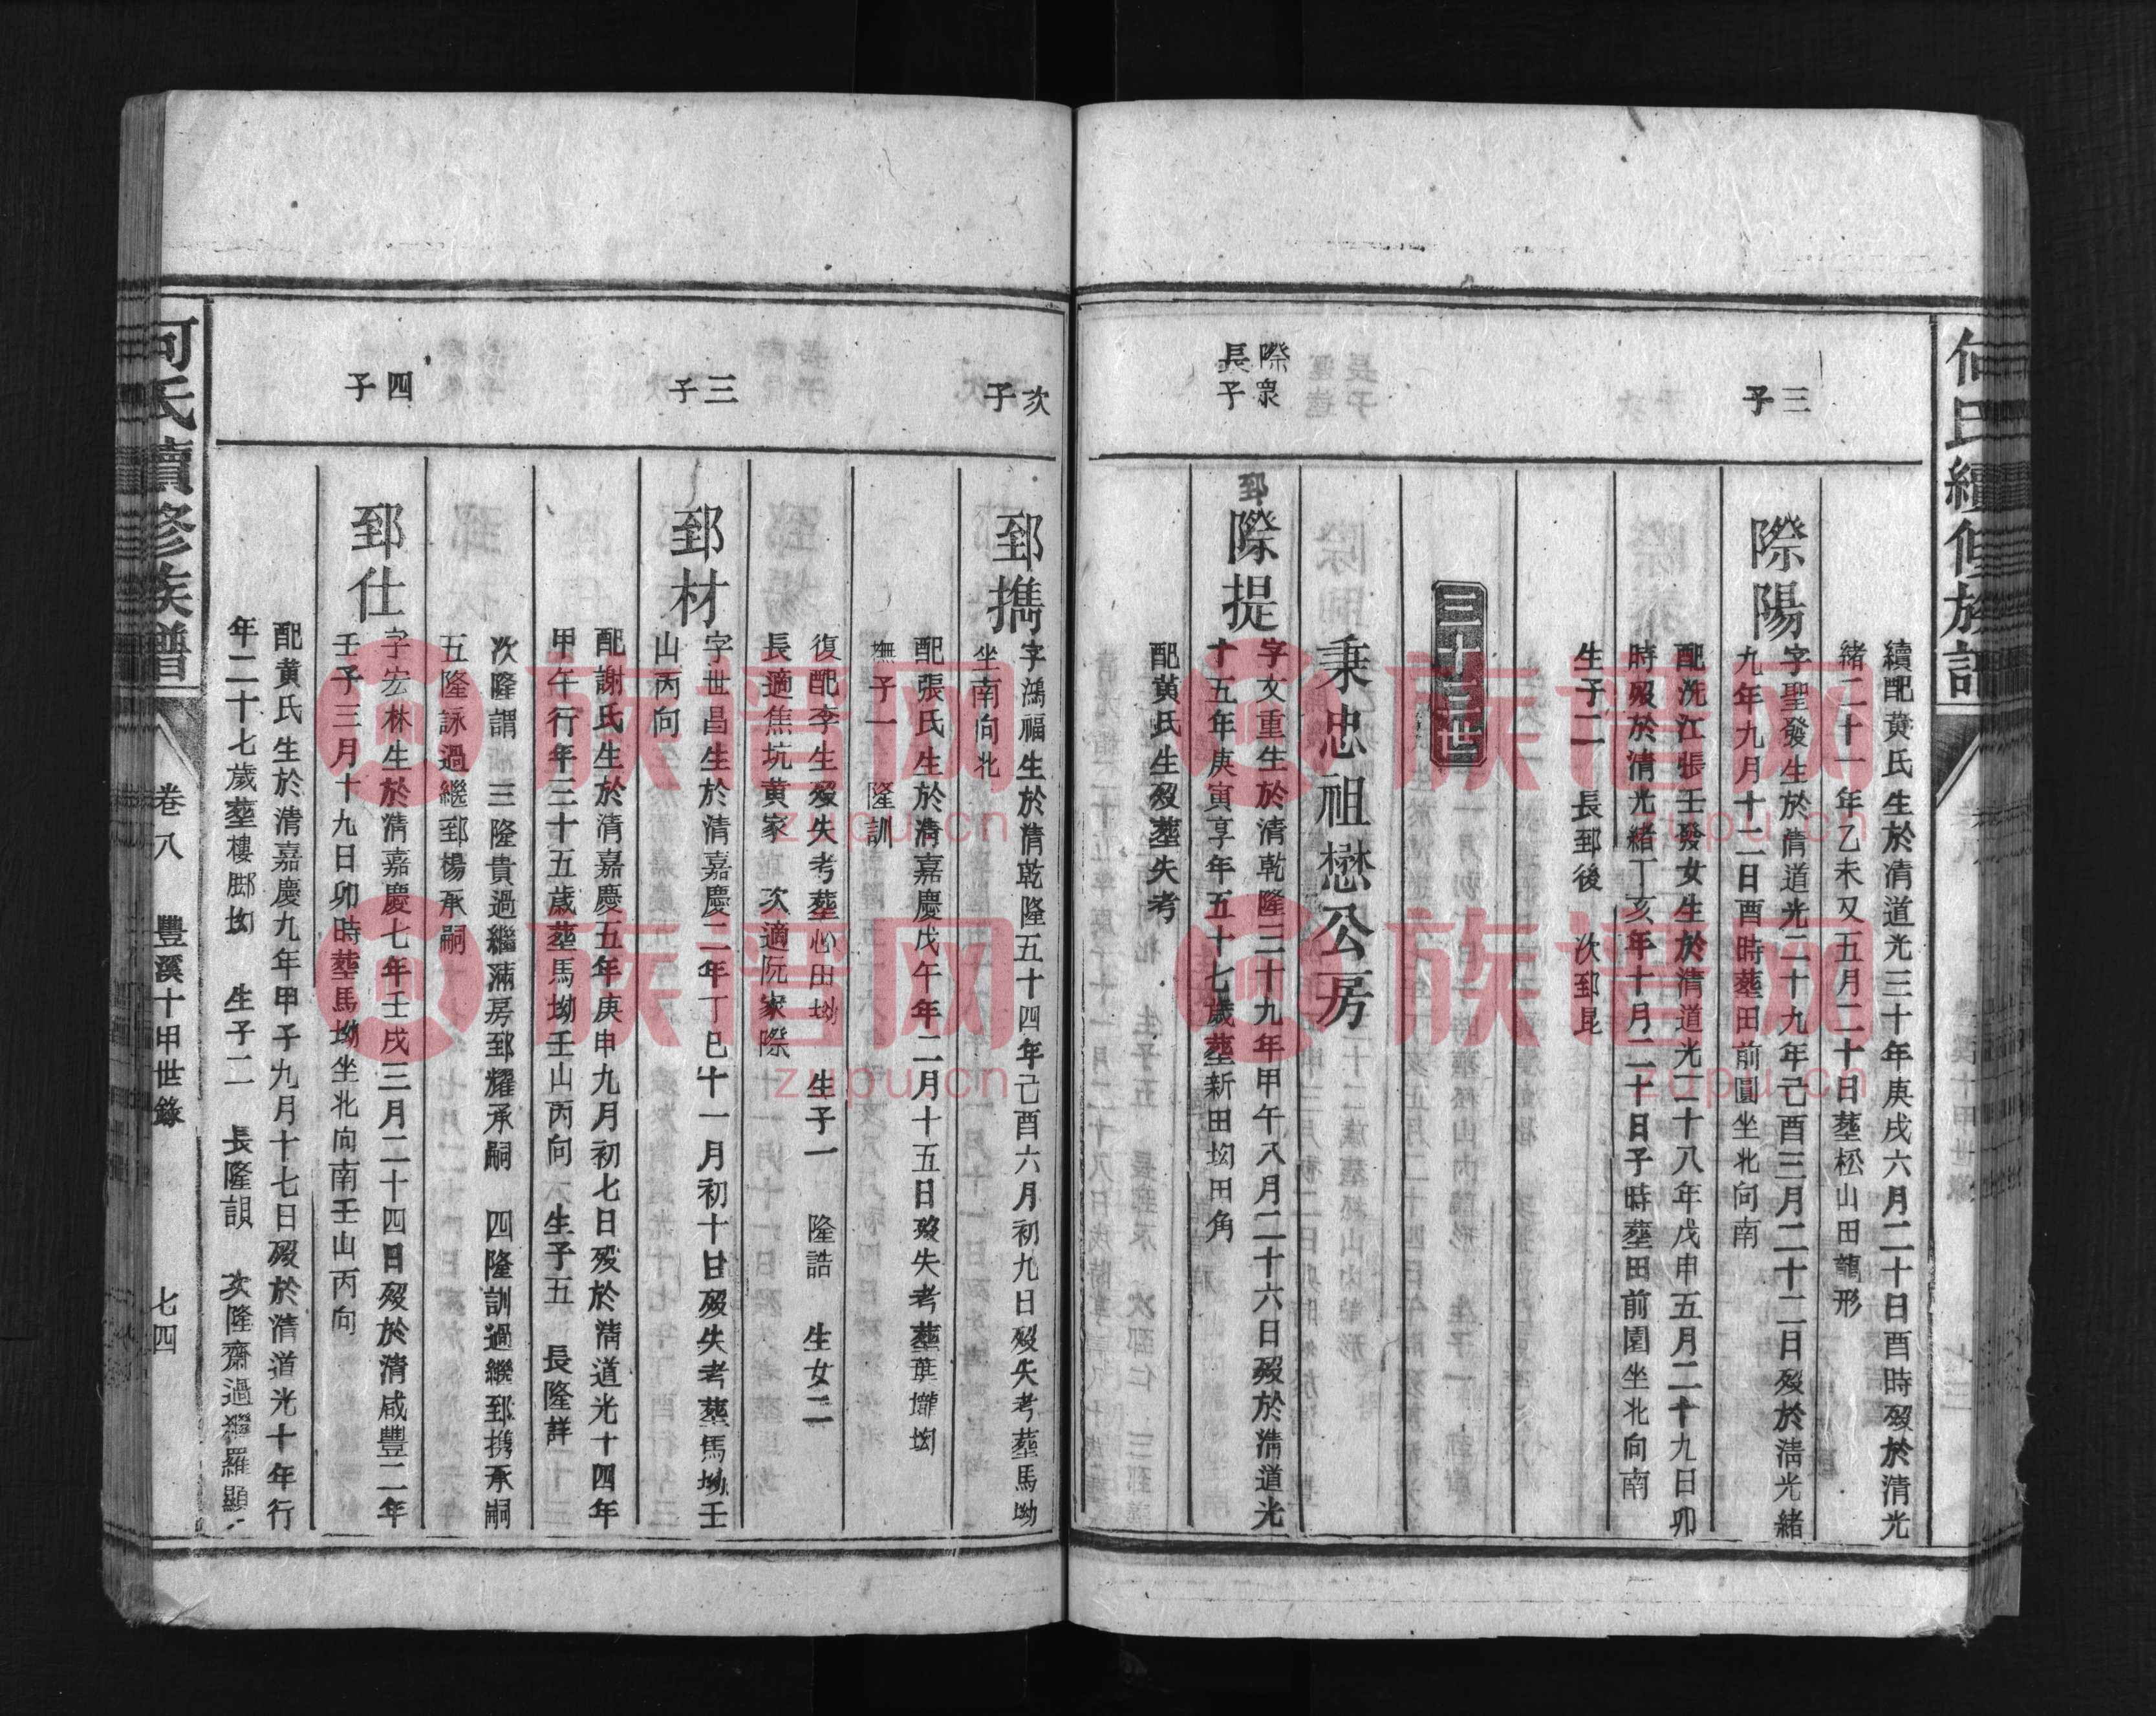 何氏續修族譜
續配黄氏生於清道光三十年庚戌六月二十日酉時歿於清光
緒二十一年乙未又五月二十日塟松山田龍形
三子
際陽
字聖發生於清道光二十九年己酉三月二十二日歿於清光緒
九年九月十二日酉時塟田前園坐北向南
配洗江張壬發女生於清道光二十八年戊申五月二十九日卯
時歿於清光緒丁亥年十月二十日子時塟田前園坐北向南
生子二 長郅後 次郅昆
三十三世
秉忠祖懋公房
際衆長子
郅
際提
字文重生於清乾隆三十九年甲午八月二十六日歿於清道光
十五年庚寅享年五十七歲塟新田坳田角
配黄氏生歿塟失考
次子
郅擕
字鴻福生於清乾隆五十四年己酉六月初九日歿失考塟馬坳
坐南向北
配張氏生於清嘉慶戊午年二月十五日歿失考塟葉壠坳
撫子一 隆訓
復配李生歿失考塟心田坳 生子一 隆誥 生女二
長適焦坑黄家 次適阮家際
三子
郅材
字世昌生於清嘉慶二年丁巳十一月初十日歿失考塟馬坳壬
山丙向
配謝氏生於清嘉慶五年庚申九月初七日歿於清道光十四年
甲午行年三十五歲塟馬坳壬山丙向 生子五 長隆詳
次隆謂 三隆貴過繼滿房郅耀承嗣 四隆訓過繼郅携承嗣
五隆詠過繼郅楊承嗣
四子
郅仕
字宏林生於清嘉慶七年壬戌三月二十四日歿於清咸豐二年
壬子三月十九日卯時塟馬坳坐北向南壬山丙向
配黄氏生於清嘉慶九年甲子九月十七日歿於清道光十年行
年二十七歲塟樓脚坳 生子二 長隆䪨 次隆齋過繼羅顯
何氏續修族譜 卷八 豐溪十甲世錄 七四
族谱网
zupu.cn
族谱网
zupu.cn
族谱网
zupu.cn
族谱网
zupu.cn